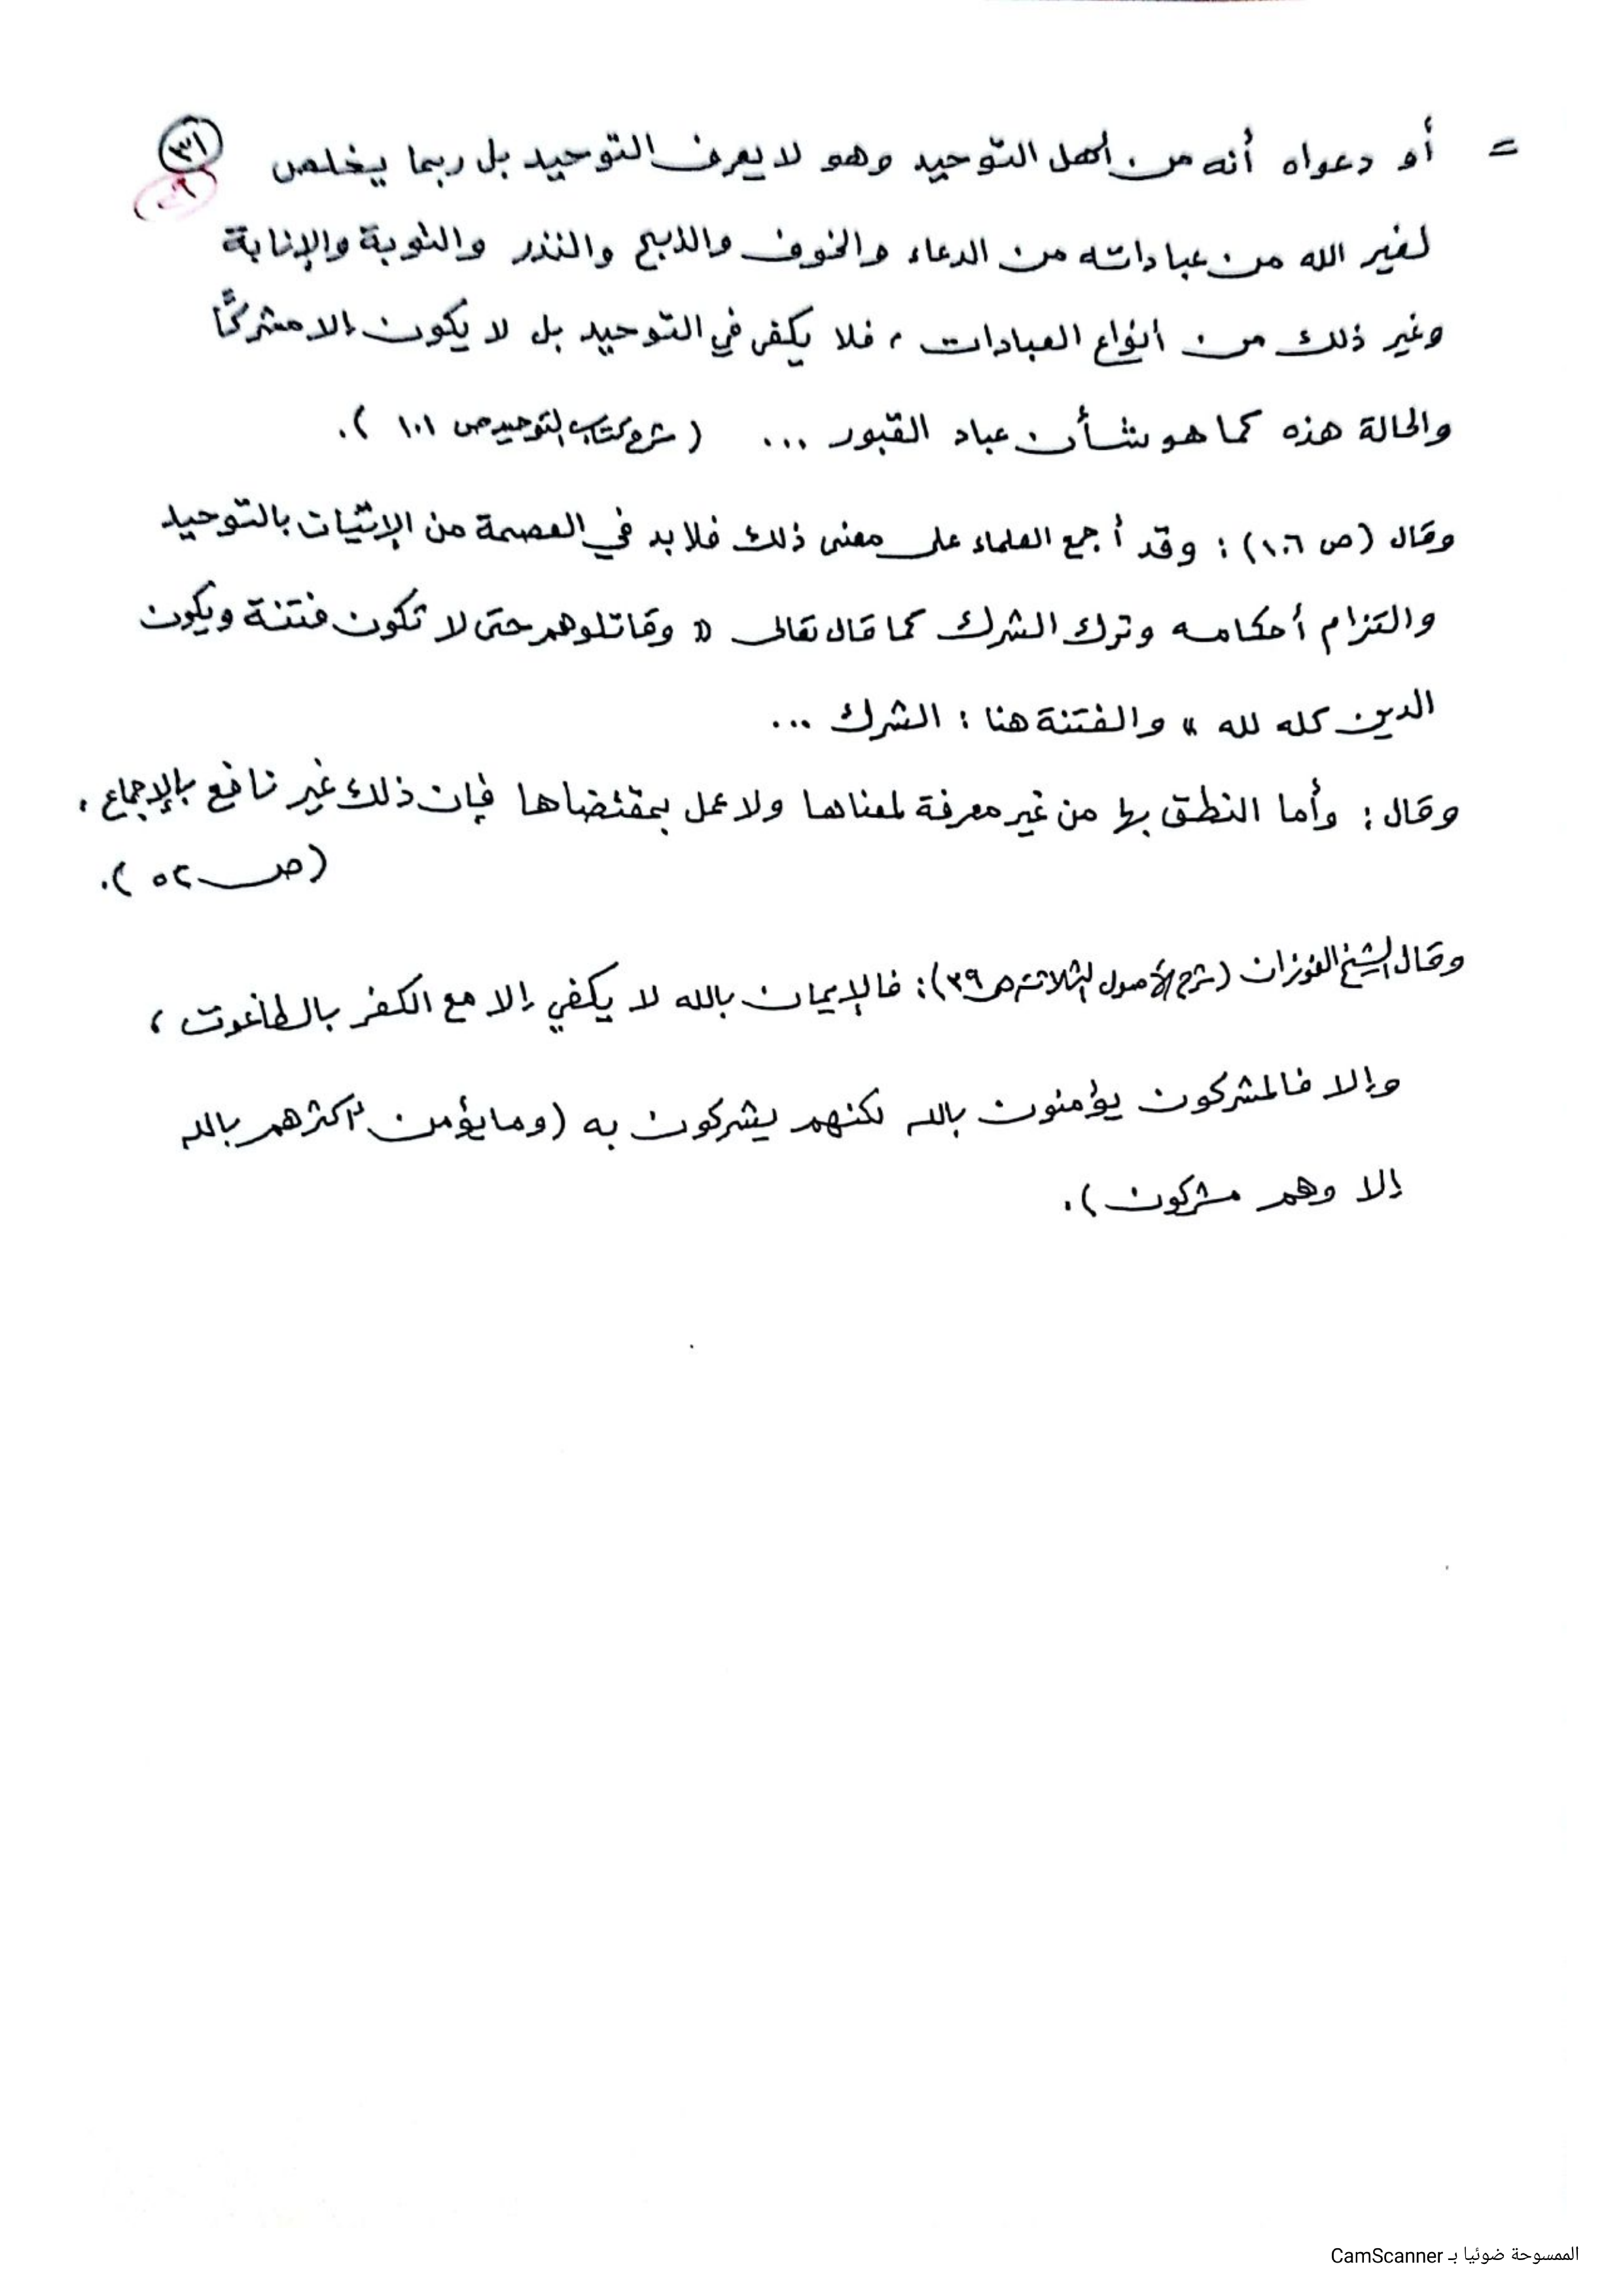 ٣١
= أو دعواه أنه من أهل التوحيد وهو لا يعرف التوحيد بل ربما يخلص
لغير الله من عباداته من الدعاء والخوف والذبح والنذر والتوبة والإنابة
وغير ذلك من أنواع العبادات ، فلا يكفى في التوحيد بل لا يكون إلا مشركًا
والحالة هذه كما هو شأن عباد القبور ... ( شرح كتاب التوحيد ص ١٠١ ).
وقال (ص ١٠٦) : وقد أجمع العلماء على معنى ذلك فلا بد في العصمة من الإتيان بالتوحيد
والتزام أحكامه وترك الشرك كما قال تعالى « وقاتلوهم حتى لا تكون فتنة ويكون
الدين كله لله » والفتنة هنا : الشرك ...
وقال : وأما النطق بها من غير معرفة لمعناها ولا عمل بمقتضاها فإن ذلك غير نافع بالإجماع .
(ص ٥٢ ).
وقال الشيخ الفوزان (شرح الأصول الثلاثة ص ٣٩) : فالإيمان بالله لا يكفي إلا مع الكفر بالطاغوت ،
وإلا فالمشركون يؤمنون بالله لكنهم يشركون به (وما يؤمن أكثرهم بالله
إلا وهم مشركون ).
الممسوحة ضوئيا بـ CamScanner